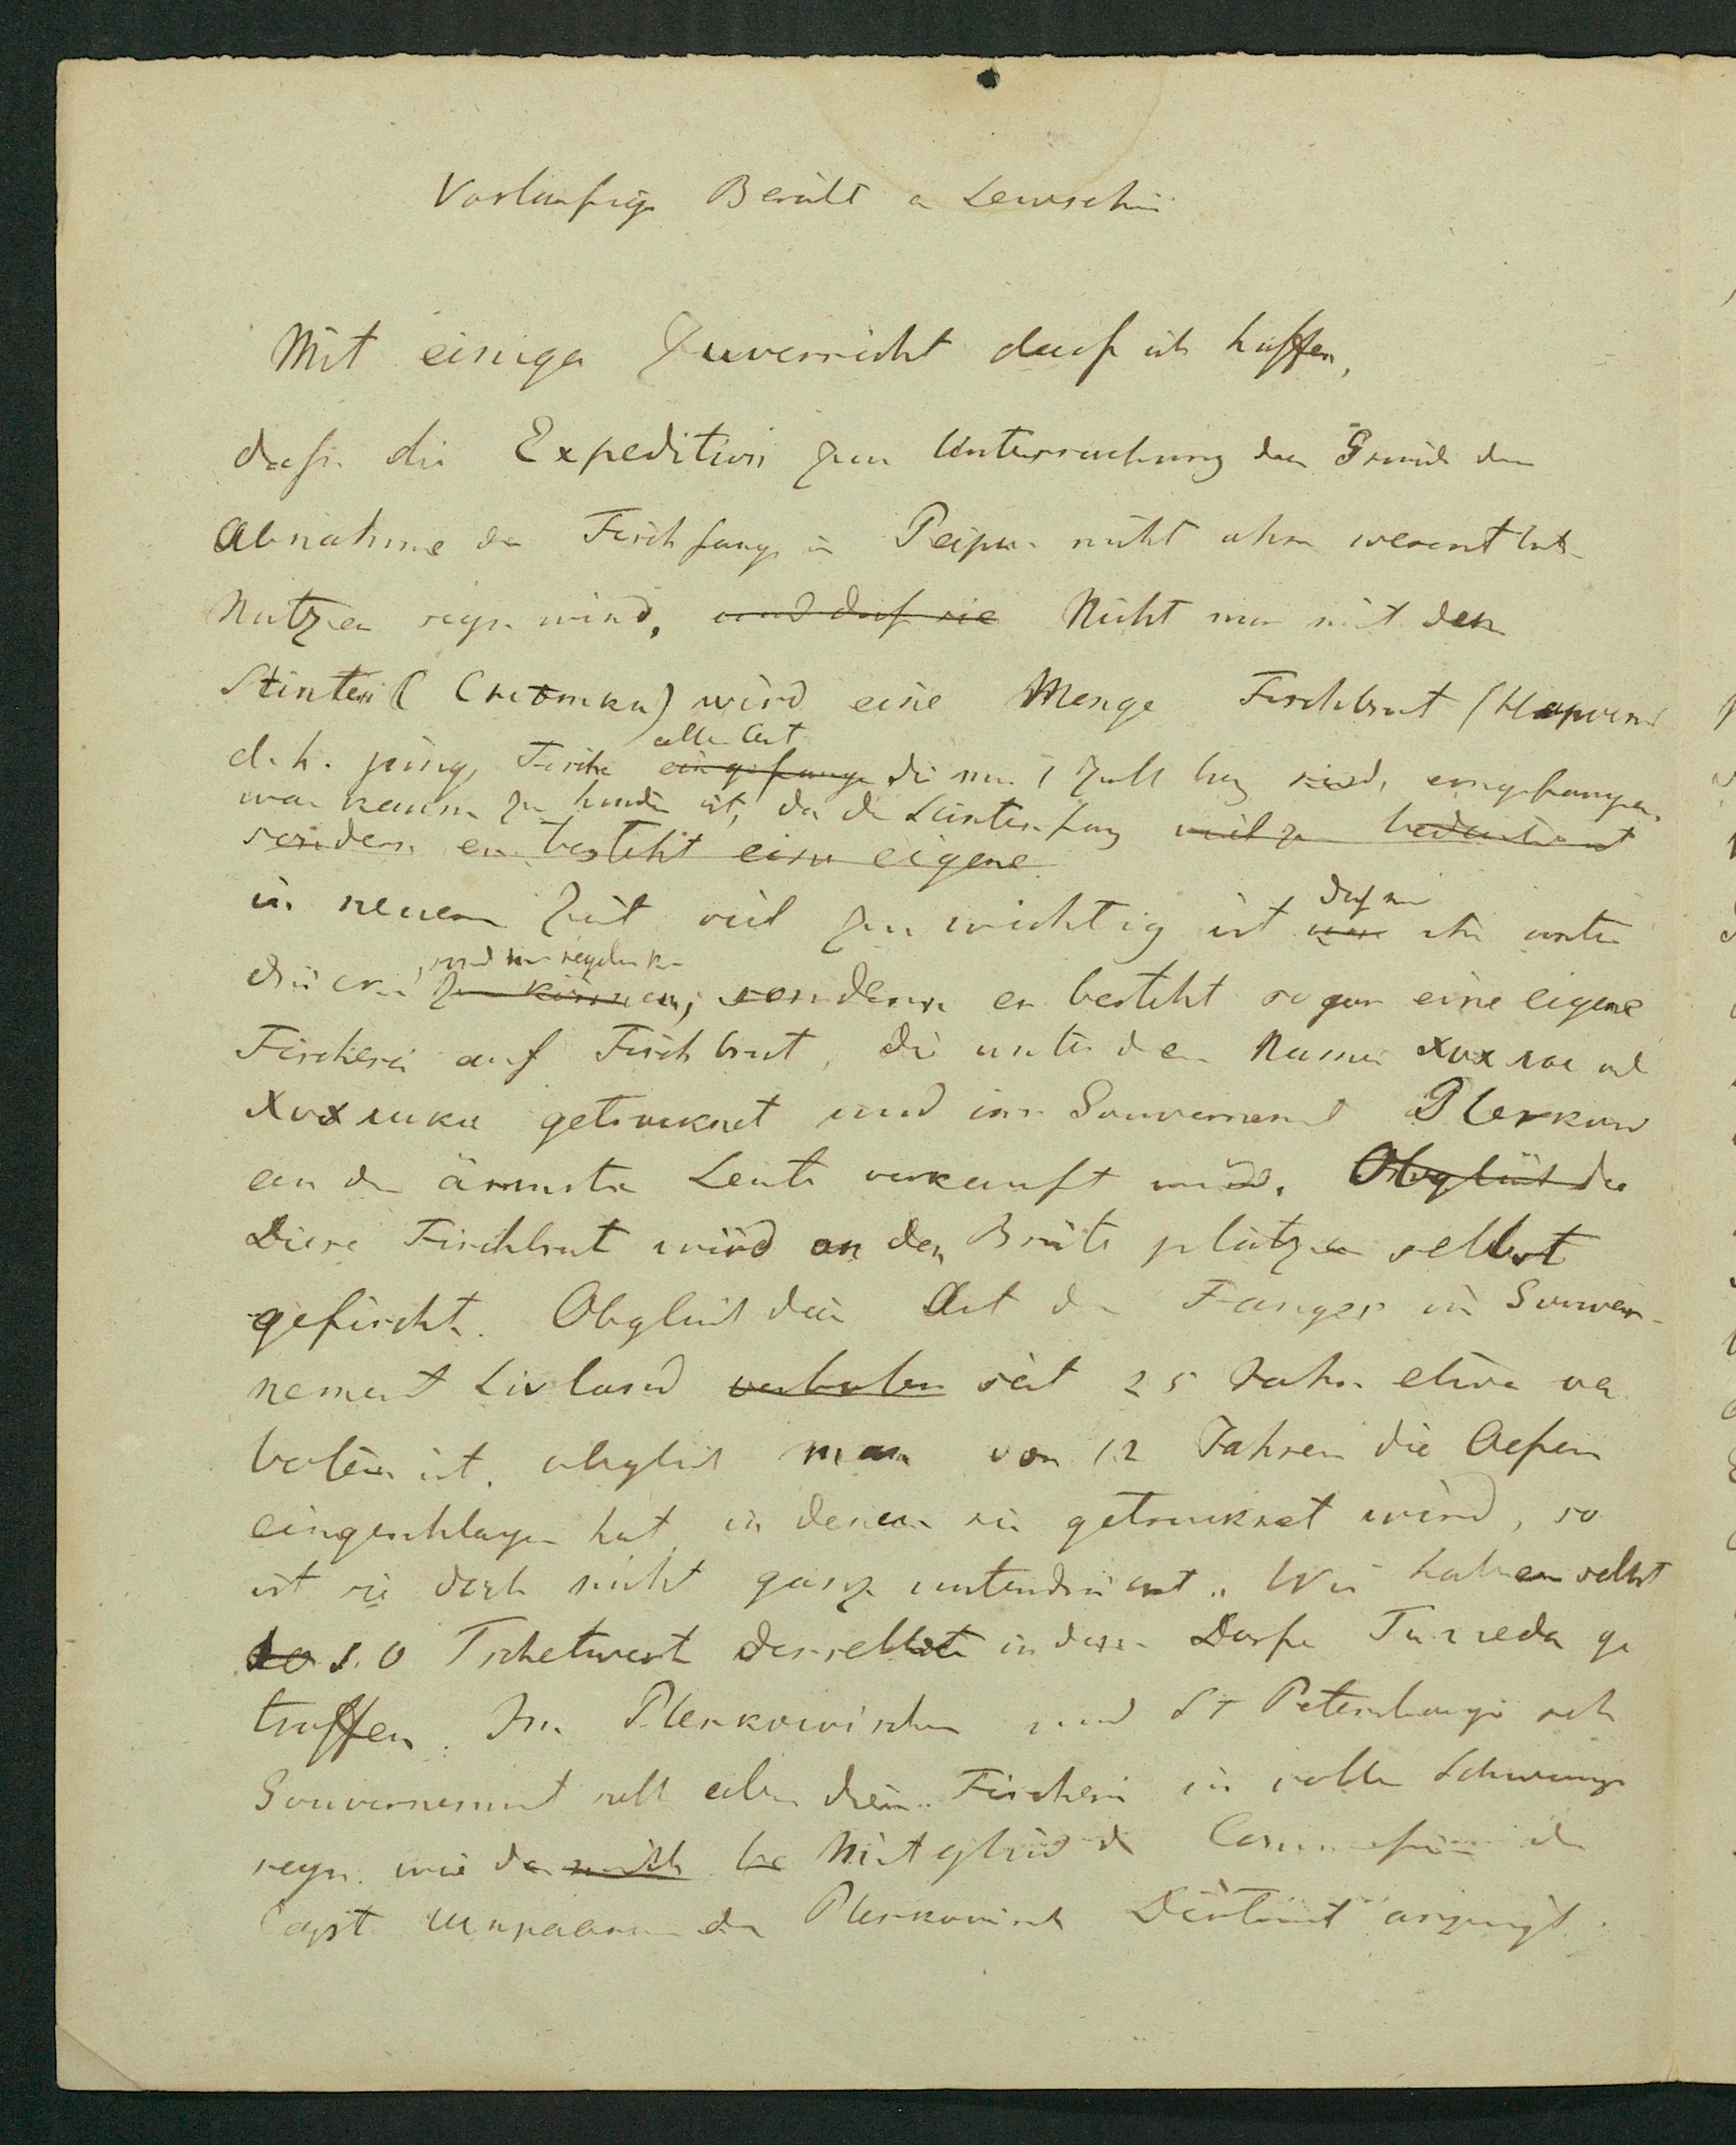 Vorläufige Bericht a Lewschin
Mit einiger Zuversicht darf ich hoffen,
dass die Expedition zur Untersuchung der Gründe der
Abnahme des Fischfangs in Peipus nicht ohne wesentlich
Nutzen seyn wird. und dass sie Nicht nur mit den
Stinten ( Снетки) wird eine Menge Fischbrut
aller Art
d. h. junge Fische eingefangen die nur 1 Zoll lang sind, eingefangen,
was kaum zu hindern ist, da der Stintenfang viel zu bedeutend
sondern es besteht eine eigene
dass wir
in neuerer Zeit viel zu wichtig ist um ihn unter
drücken zu können, sondern es besteht sogar eine eigene
Fischerei auf Fischbrut, die unter dem Namen хохлы od
Хохлики getrocknet und im Gouvernement Pleskow
an die ärmsten Leute verkauft wird. Obgleich die
Diese Fischbrut wird an den Brüteplätzen selbst
gefischt. Obgleich diese Art des Fanges im Gouver-
nement Livland verboten seit 25 Jahren etwa ver
boten ist, obgleich man vor 12 Jahren die Oefen
eingeschlagen hat, in denen sie getrocknet wird, so
ist sie doch nicht ganz unterdrückt. Wir haben selbst
10 Tschetwert desselben in dem Dorfe ge
troffen. Im Pleskowischen und St Petersburgisch
Gouvernement soll aber diese Fischerei in vollem Schwunge
seyn. wie der mich be Mitglied d Commission der
Capt der Pleskowisch District anzeigt.